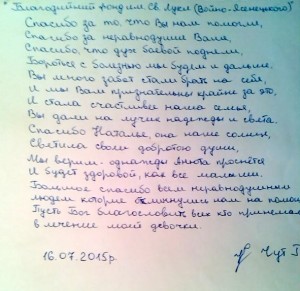 * Благодатний фондим Св Луки (Войно-Ясенецкого)
Спасибо за то, что Вы нам помогли,
Спасибо за неравнодушие Ваше,
Спасибо, что дух боевой подняли,
Бороться с болезнью мы будем и дальше.
Вы много забот стали брать на себя,
И мы Вам признательны крайне за это,
И стала счастливее наша семья,
Вы дали на лучик надежды и света.
Спасибо Наталье, она наше солнце,
Светила своей добротою души,
Мы верим - однажды Анюта проснётся
И будет здоровой, как все малыши.
Большое спасибо всем неравнодушным
людем которие откликнули нам на помощ
Пусть Бог благословит всих кто принемал
в лечение моей девочки.
16.07.2015р. Чут